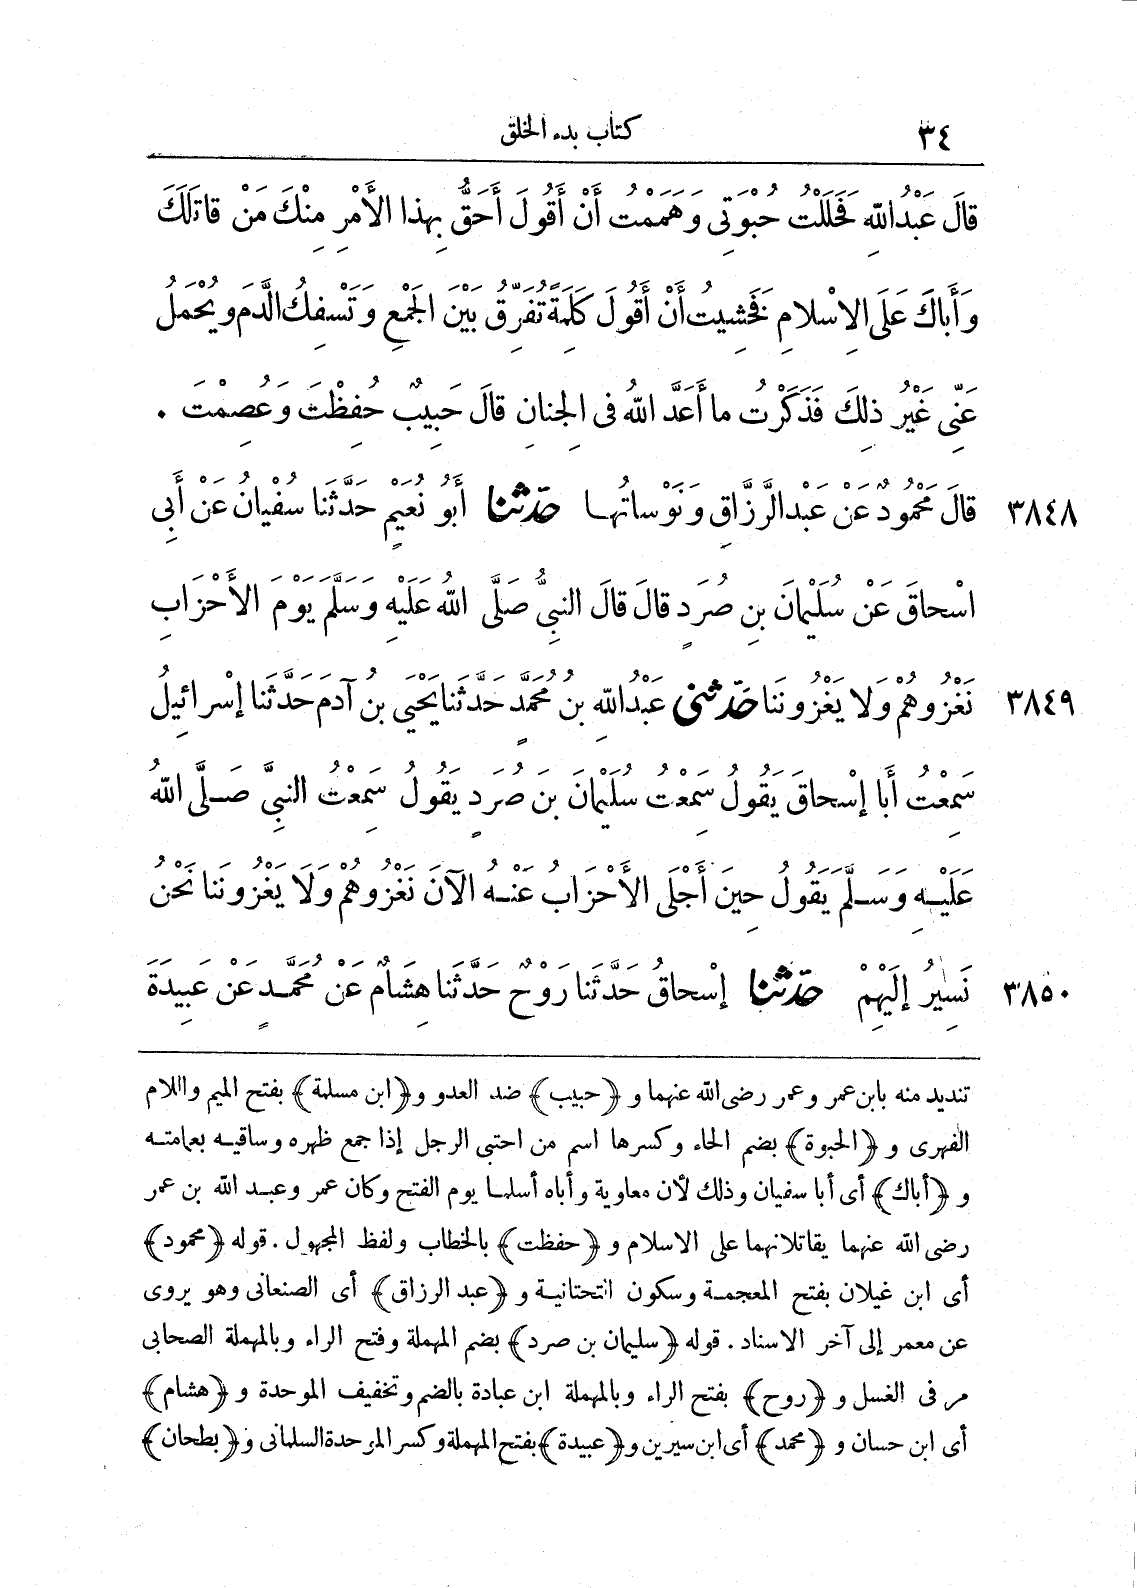 ٣٤ كتاب بدء الخلق
قالَ عَبْدُ اللّهِ فَحَلَلْتُ حُبْوَتِى وَهَمَمْتُ أَنْ أَقُولَ أَحَقُّ بِهذا الأَمْرِ مِنْكَ مَنْ قاتَلَكَ
وَأَباكَ عَلَى الإِسْلامِ فَخَشِيتُ أَنْ أَقُولَ كَلِمَةً تُفَرِّقُ بَيْنَ الجَمْعِ وَتَسْفِكُ الدَّمَ وَيُحْمَلُ
عَنِّى غَيْرُ ذلِكَ فَذَكَرْتُ ما أَعَدَّ اللّهُ فى الجِنانِ قالَ حَبِيبٌ حُفِظْتَ وَعُصِمْتَ .
٣٨٤٨ قالَ مَحْمُودٌ عَنْ عَبْدِ الرَّزَّاقِ وَنَوْساتُها حَدّثنا أَبُو نُعَيْمٍ حَدَّثَنا سُفْيانُ عَنْ أَبِى
اسْحاقَ عَنْ سُلَيْمانَ بنِ صُرَدٍ قالَ قالَ النبِىُّ صَلَّى اللّهُ عَلَيْهِ وَسَلَّمَ يَوْمَ الأَحْزابِ
٣٨٤٩ نَغْزُوهُمْ وَلا يَغْزُونَنا حَدّثنى عَبْدُ اللّهِ بنُ مُحَمَّدٍ حَدَّثَنا يَحْيَى بنُ آدَمَ حَدَّثَنا إسْرائِيلُ
سَمِعْتُ أَبا إسْحاقَ يَقُولُ سَمِعْتُ سُلَيْمانَ بنَ صُرَدٍ يَقُولُ سَمِعْتُ النبِىَّ صَلَّى اللّهُ
عَلَيْهِ وَسَلَّمَ يَقُولُ حِينَ أَجْلَى الأَحْزابُ عَنْهُ الآنَ نَغْزُوهُمْ وَلا يَغْزُونَنا نَحْنُ
٣٨٥٠ نَسِيرُ إلَيْهِمْ حَدّثنا إسْحاقُ حَدَّثَنا رَوْحٌ حَدَّثَنا هِشامٌ عَنْ مُحَمَّدٍ عَنْ عَبِيدَةَ
تنديد منه بابن عمر وعمر رضى الله عنهما و ﴿حبيب﴾ ضد العدو و﴿ابن مسلمة﴾ بفتح الميم واللام
الفهرى و ﴿الحبوة﴾ بضم الحاء وكسرها اسم من احتبى الرجل إذا جمع ظهره وساقيه بعامته
و ﴿أباك﴾ أى أبا سفيان وذلك لأن معاوية وأباه أسلما يوم الفتح وكان عمر وعبد الله بن عمر
رضى الله عنهما يقاتلانهما على الاسلام و ﴿حفظت﴾ بالخطاب ولفظ المجهول . قوله ﴿محمود﴾
أى ابن غيلان بفتح المعجمة وسكون التحتانية و ﴿عبد الرزاق﴾ أى الصنعانى وهو يروى
عن معمر إلى آخر الاسناد . قوله ﴿سليمان بن صرد﴾ بضم المهملة وفتح الراء وبالمهملة الصحابى
مر فى الغسل و ﴿روح﴾ بفتح الراء وبالمهملة ابن عبادة بالضم وتخفيف الموحدة و ﴿هشام﴾
أى ابن حسان و ﴿محمد﴾ أى ابن سيرين و﴿عبيدة﴾ بفتح المهملة وكسر الموحدة السلمانى و﴿بطحان﴾